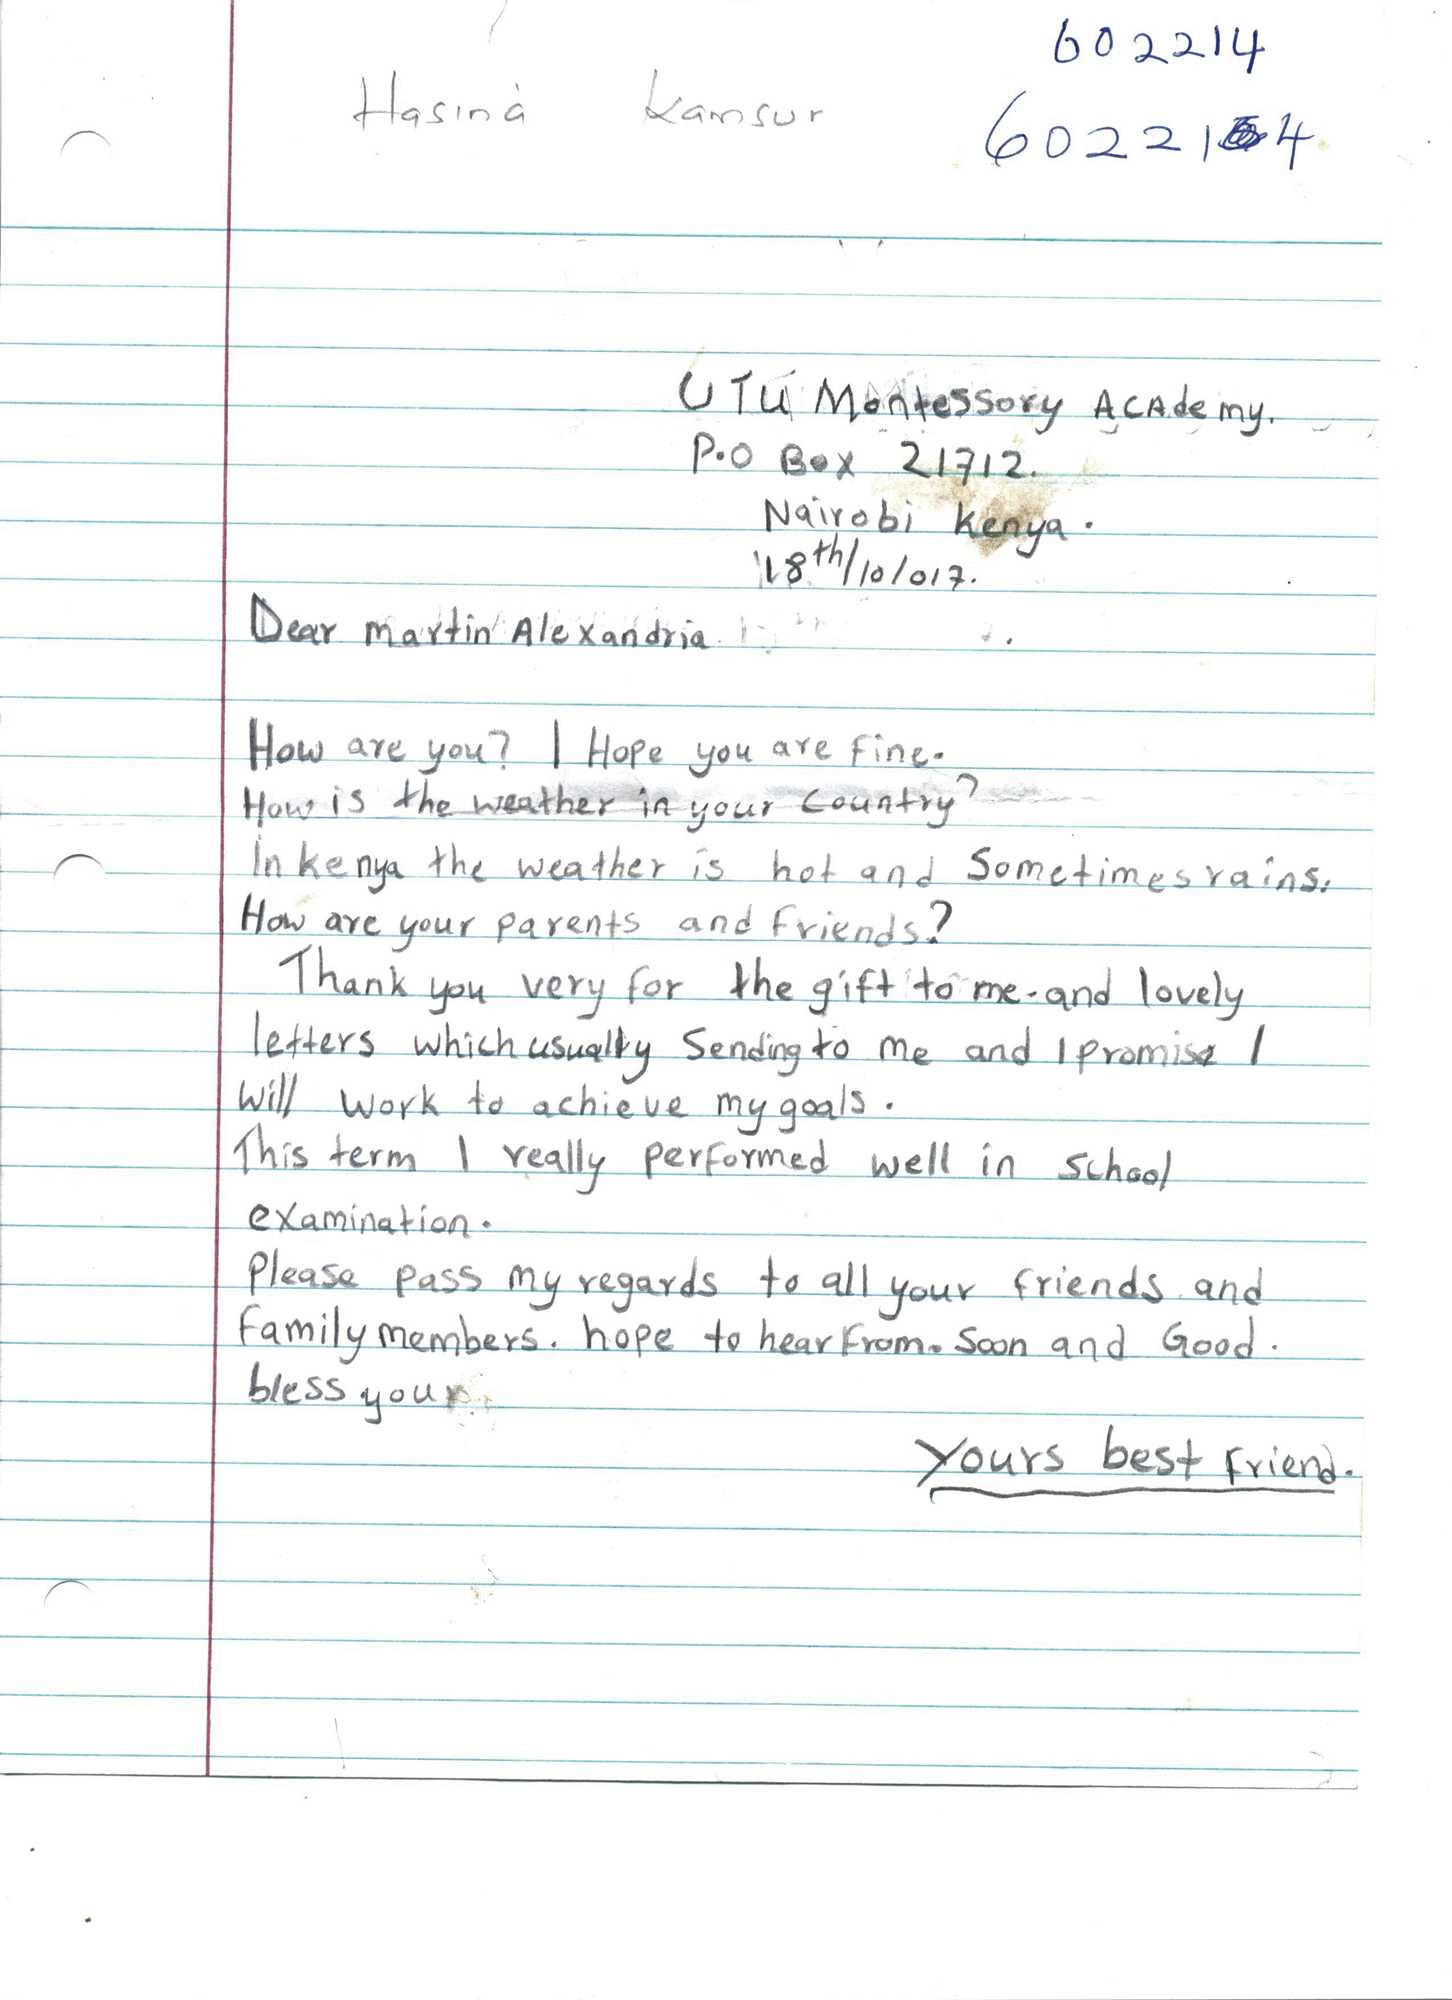 602214
Hasina Kamsur
602214
UTU Montessory ACAdemy.
P.O Box 21712.
Nairobi Kenya.
18th/10/017.
Dear martin Alexandria
How are you? I Hope you are fine.
How is the weather in your country?
In kenya the weather is hot and Sometimes rains.
How are your parents and friends?
Thank you very for the gift to me. and lovely
letters which usually Sending to me and I promise I
Will work to achieve my goals.
This term I really performed well in school
examination.
Please pass my regards to all your friends and
family members. hope to hear from. Soon and Good.
bless your
Yours best friend.